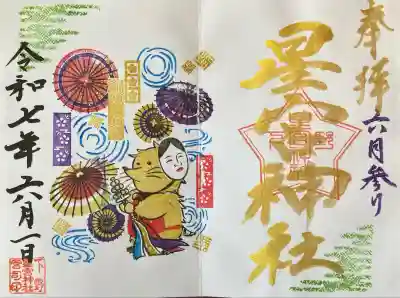 奉拝
六月参り
星宮神社
令和七年六月一日